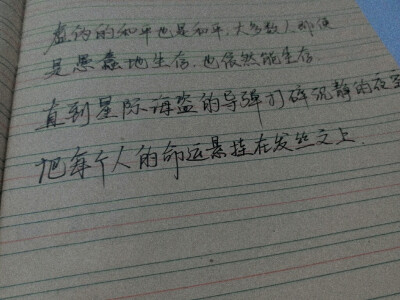 虚伪的和平也是和平,大多数人即便
是愚蠢地生存,也依然能生存
直到星际海盗的导弹划碎沉静的夜空
把每个人的命运悬挂在发丝之上.